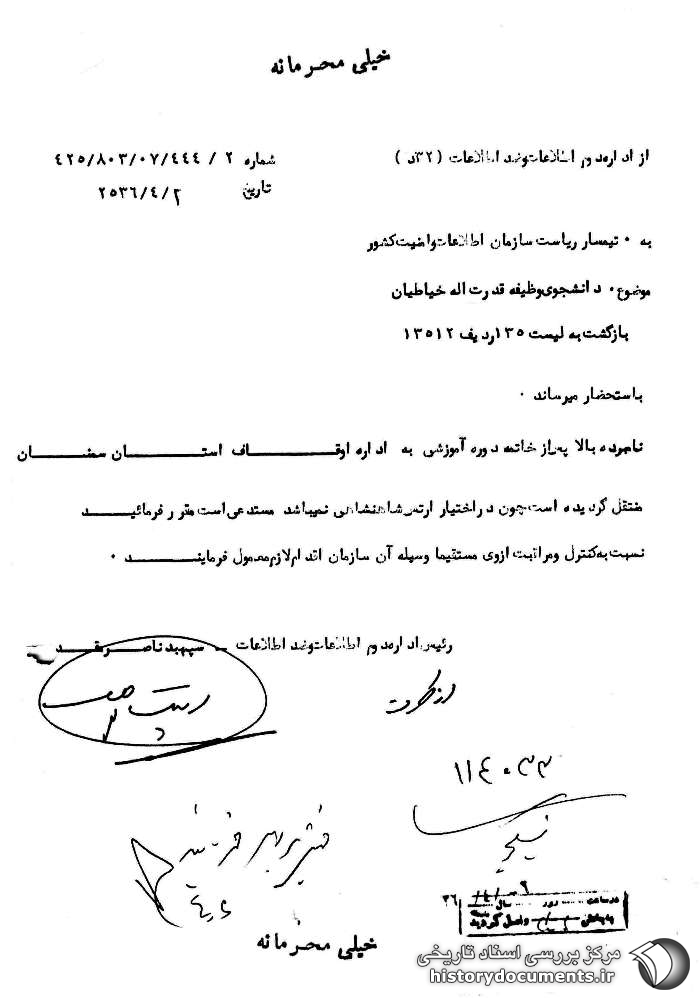 خیلی محرمانه
از اداره دوم اطلاعات و ضد اطلاعات (۳۲د)
شماره ۲ / ۴۲۵/۸۰۳/۰۷/۴۴۴
تاریخ ۲۵۳۶/۴/۲
به ۰ تیمسار ریاست سازمان اطلاعات و امنیت کشور
موضوع ۰ دانشجوی وظیفه قدرت اله خیاطیان
بازگشت به لیست ۱۳۵ ردیف ۱۳۵۱۲
باستحضار میرساند ۰
نامبرده بالا پس از خاتمه دوره آموزشی به اداره اوقــاف استــان سمنــان
منتقل گردیده است چون در اختیار ارتش شاهنشاهی نمیباشد مستدعی است مقرر فرمائیــد
نسبت به کنترل و مراقبت ازوی مستقیما وسیله آن سازمان اقدام لازم معمول فرماینــد ۰
رئیس اداره دوم اطلاعات و ضد اطلاعات – سپهبد ناصر مقــدم
۱۱۴۰۳۳
۳۶
در ساعت روز سال
واصل گردید
خیلی محرمانه
مرکز بررسی اسناد تاریخی
historydocuments.ir